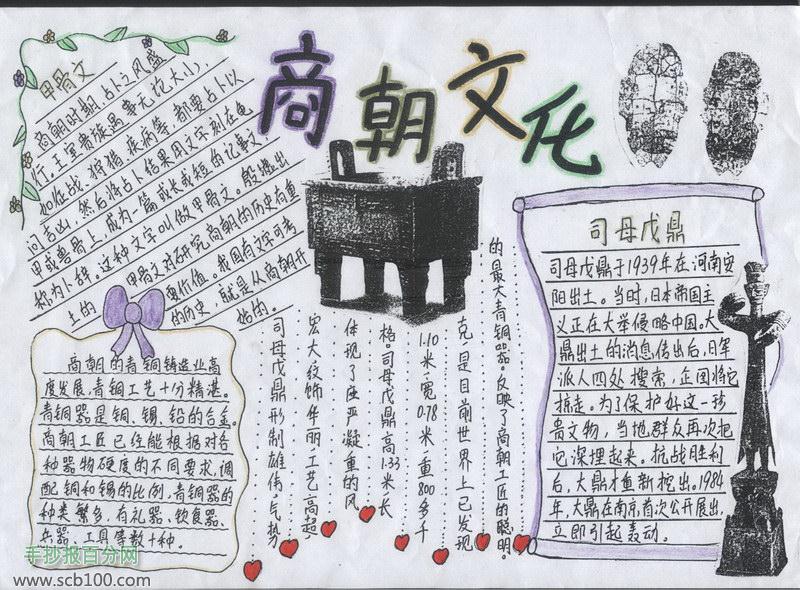 商朝文化
甲骨文
商朝时期,占卜之风盛
行,王室贵族遇事无论大小,
如征战、狩猎、疾病等,都要占卜以
问吉凶,然后将占卜结果用文字刻在龟
甲或兽骨上,成为一篇或长或短的记事文,
称为卜辞。这种文字叫做甲骨文。殷墟出
土的 甲骨文对研究商朝的历史有重
要价值。我国有文字可考
的历史 就是从商朝开
始的。
商朝的青铜铸造业高
度发展,青铜工艺十分精湛。
青铜器是铜、锡、铅的合金。
商朝工匠已经能根据对各
种器物硬度的不同要求,调
配铜和锡的比例,青铜器的
种类繁多,有礼器、饮食器、
兵器、工具等数十种。
司母戊鼎形制雄伟,气势
宏大,纹饰华丽,工艺高超
体现了庄严凝重的风
格。司母戊鼎高1.33米、长
1.10米、宽0.78米,重800多千
克,是目前世界上已发现
的最大青铜器。反映了商朝工匠的聪明。
司母戊鼎
司母戊鼎于1939年在河南安
阳出土。当时,日本帝国主
义正在大举侵略中国。大
鼎出土的消息传出后,日军
派人四处搜索,企图将它
掠走。为了保护好这一珍
贵文物,当地群众再次把
它深埋起来。抗战胜利
后,大鼎才重新挖出。1984
年,大鼎在南京首次公开展出,
立即引起轰动。
手抄报百分网
www.scb100.com